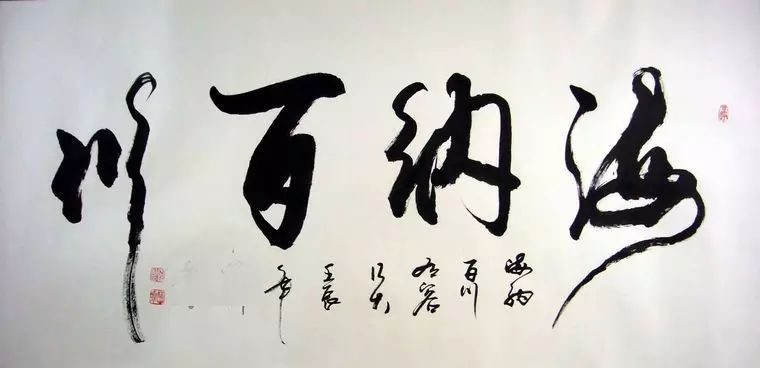 海納百川
海納
百川
有容
乃大
壬辰
年